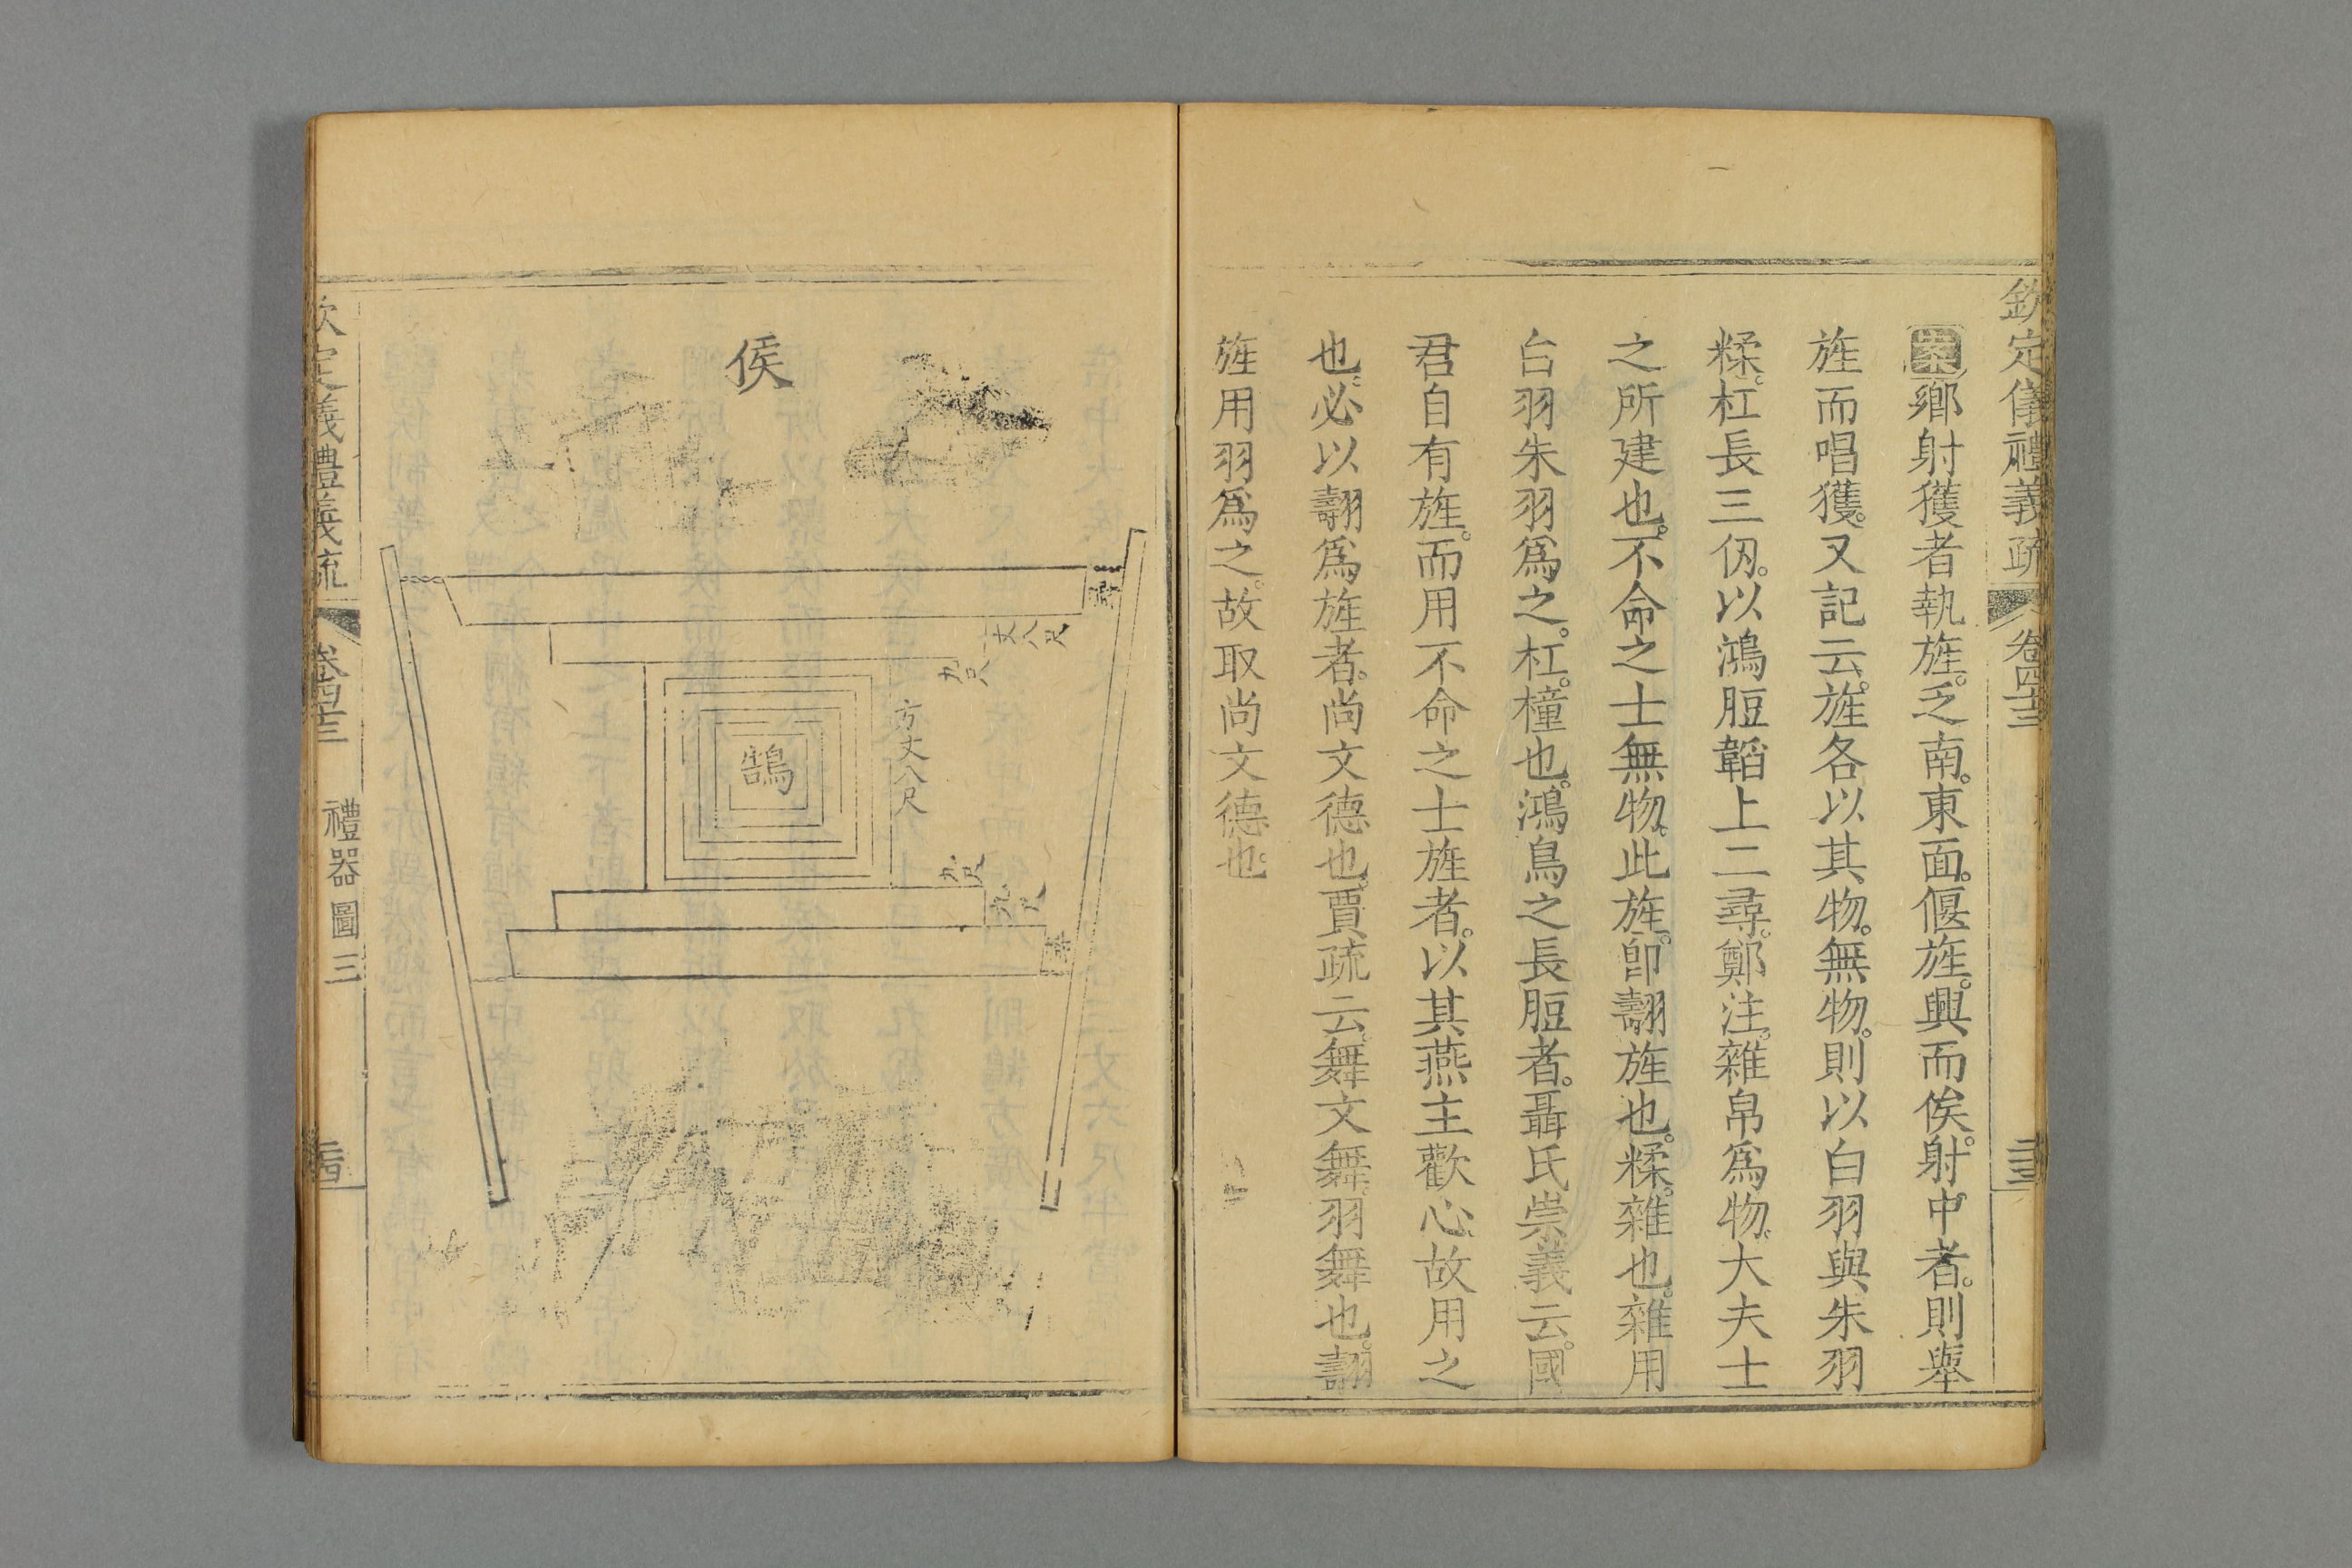 欽定儀禮義疏 卷四十三
案鄉射獲者執旌。乏南。東面。偃旌。興而俟。射中者。則舉
旌而唱獲。又記云。旌各以其物。無物。則以白羽與朱羽
糅。杠長三仞。以鴻脰韜上二尋。鄭注。雜帛爲物。大夫士
之所建也。不命之士無物。此旌。卽翿旌也。糅。雜也。雜用
白羽朱羽爲之。杠。橦也。鴻鳥之長脰者。聶氏崇義云。國
君自有旌。而用不命之士旌者。以其燕主歡心。故用之
也。必以翿爲旌者。尚文德也。賈疏云。舞文舞。羽舞也。翿
旌用羽爲之。故取尚文德也。
侯
丈八尺
九尺
方丈八尺
鵠
九尺
九尺
欽定義禮義疏 卷四十三 禮器圖三